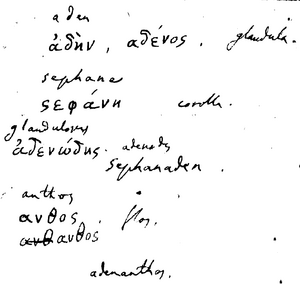 aden
ἀδὴν, αδένος. glandula.
sephane
ςεφάνη corolla.
glandulosus
ἀδενώδης. adenodes
Sephanaden.
anthos
ανθος. flos.
ανθ ανθος
adenanthos.